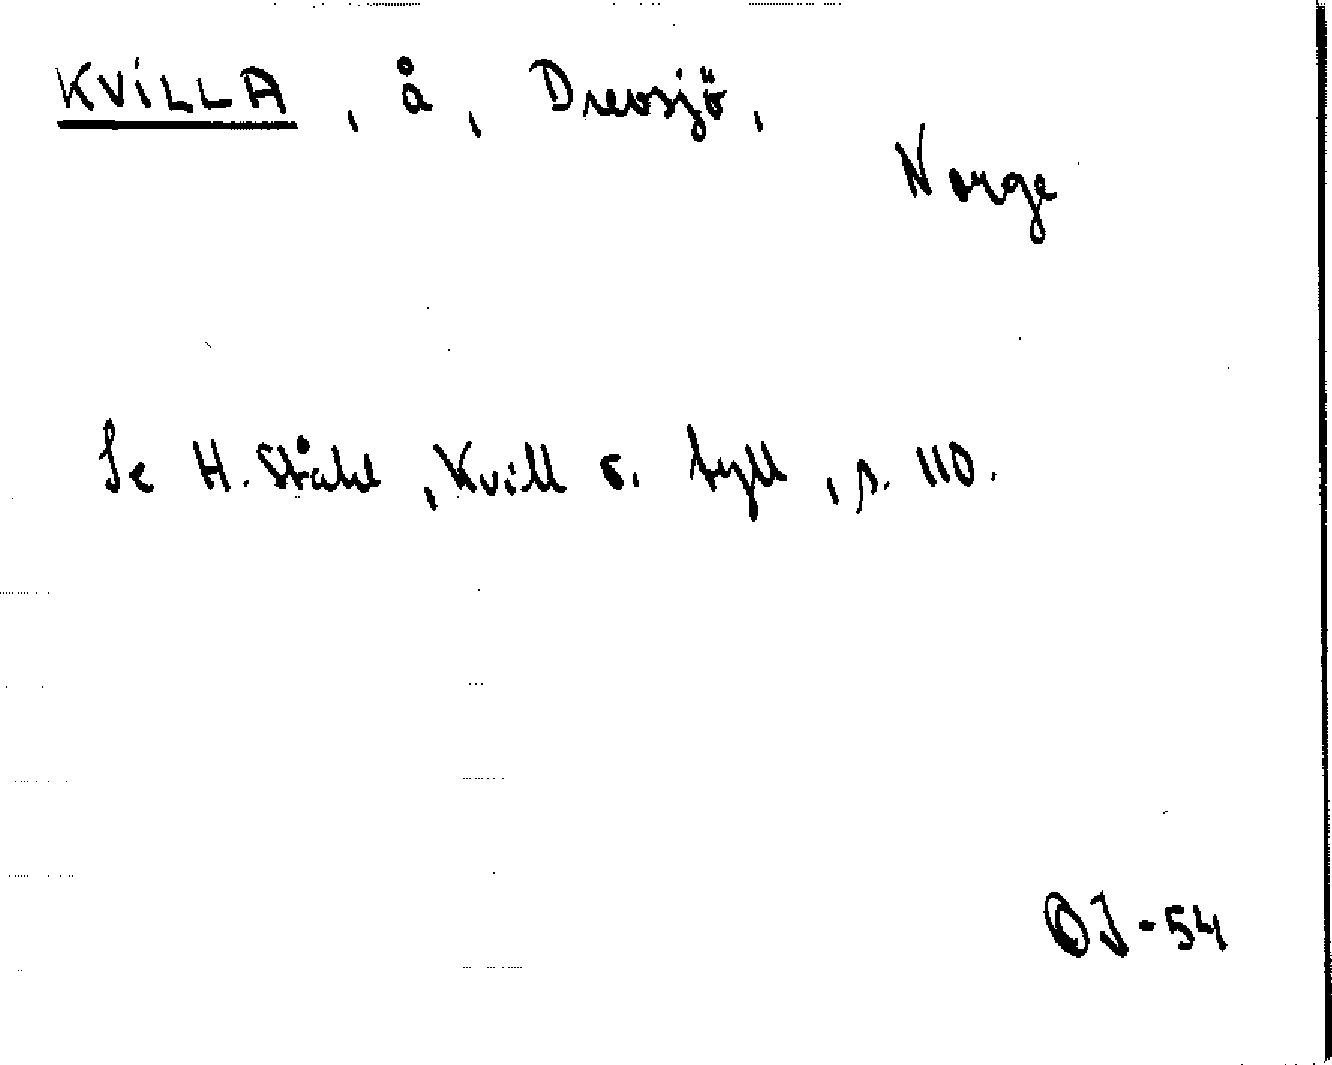 KVILLA, å, Drevsjö,
Norge
Se H. Ståhl, Kvill o. tyll, s. 110.
OJ-54